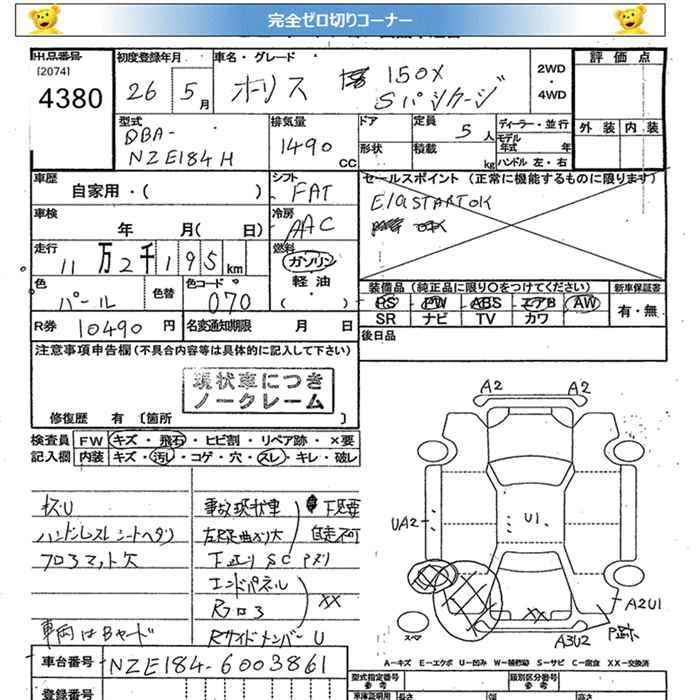 完全ゼロ切りコーナー
出品番号
[2074]
4380
初度登録年月
26 5月
車名・グレード
ホリス 150X
Sパッケージ
2WD
・
4WD
評価点
外装 内装
型式
DBA-
NZE184H
排気量
1490 CC
ドア
形状
定員 5人
積載 kg
ディーラー・並行
モデル年式 年
ハンドル 左・右
車歴
自家用・( )
シフト
FAT
セールスポイント (正常に機能するものに限ります)
E/G START OK
車検
年 月( 日)
冷房
AAC
走行
11万2千195km
燃料
ガソリン
軽油
・( )
色
パール
色替
色コード
070
装備品 (純正品に限り○をつけてください)
PS PW ABS エアB AW
SR ナビ TV カワ
新車保証書
有・無
R券 10490円
名変通知期限 月 日
後日品
注意事項申告欄 (不具合内容等は具体的に記入して下さい)
現状車につき
ノークレーム
修復歴 有 [箇所 ]
検査員 FW キズ・飛石・ヒビ割・リペア跡・×要
記入欄 内装 キズ・汚レ・コゲ・穴・スレ・キレ・破レ
ハンドルスレ シートヘタリ
フロアマット欠
車両はBヤード
事故現状車
下廻り SC
エンドパネル
Rフロア
XX
Rサイドメンバー U
自走不可
A2 A2
UA2
U1
A2U1
A3U2
XX
スペア
A－キズ E－エクボ U－凹み W－補修跡 S－サビ C－腐食 XX－交換済
車台番号 NZE184-6003861
登録番号
型式指定番号
参考
類別区分番号
参考
長さ
幅
高さ